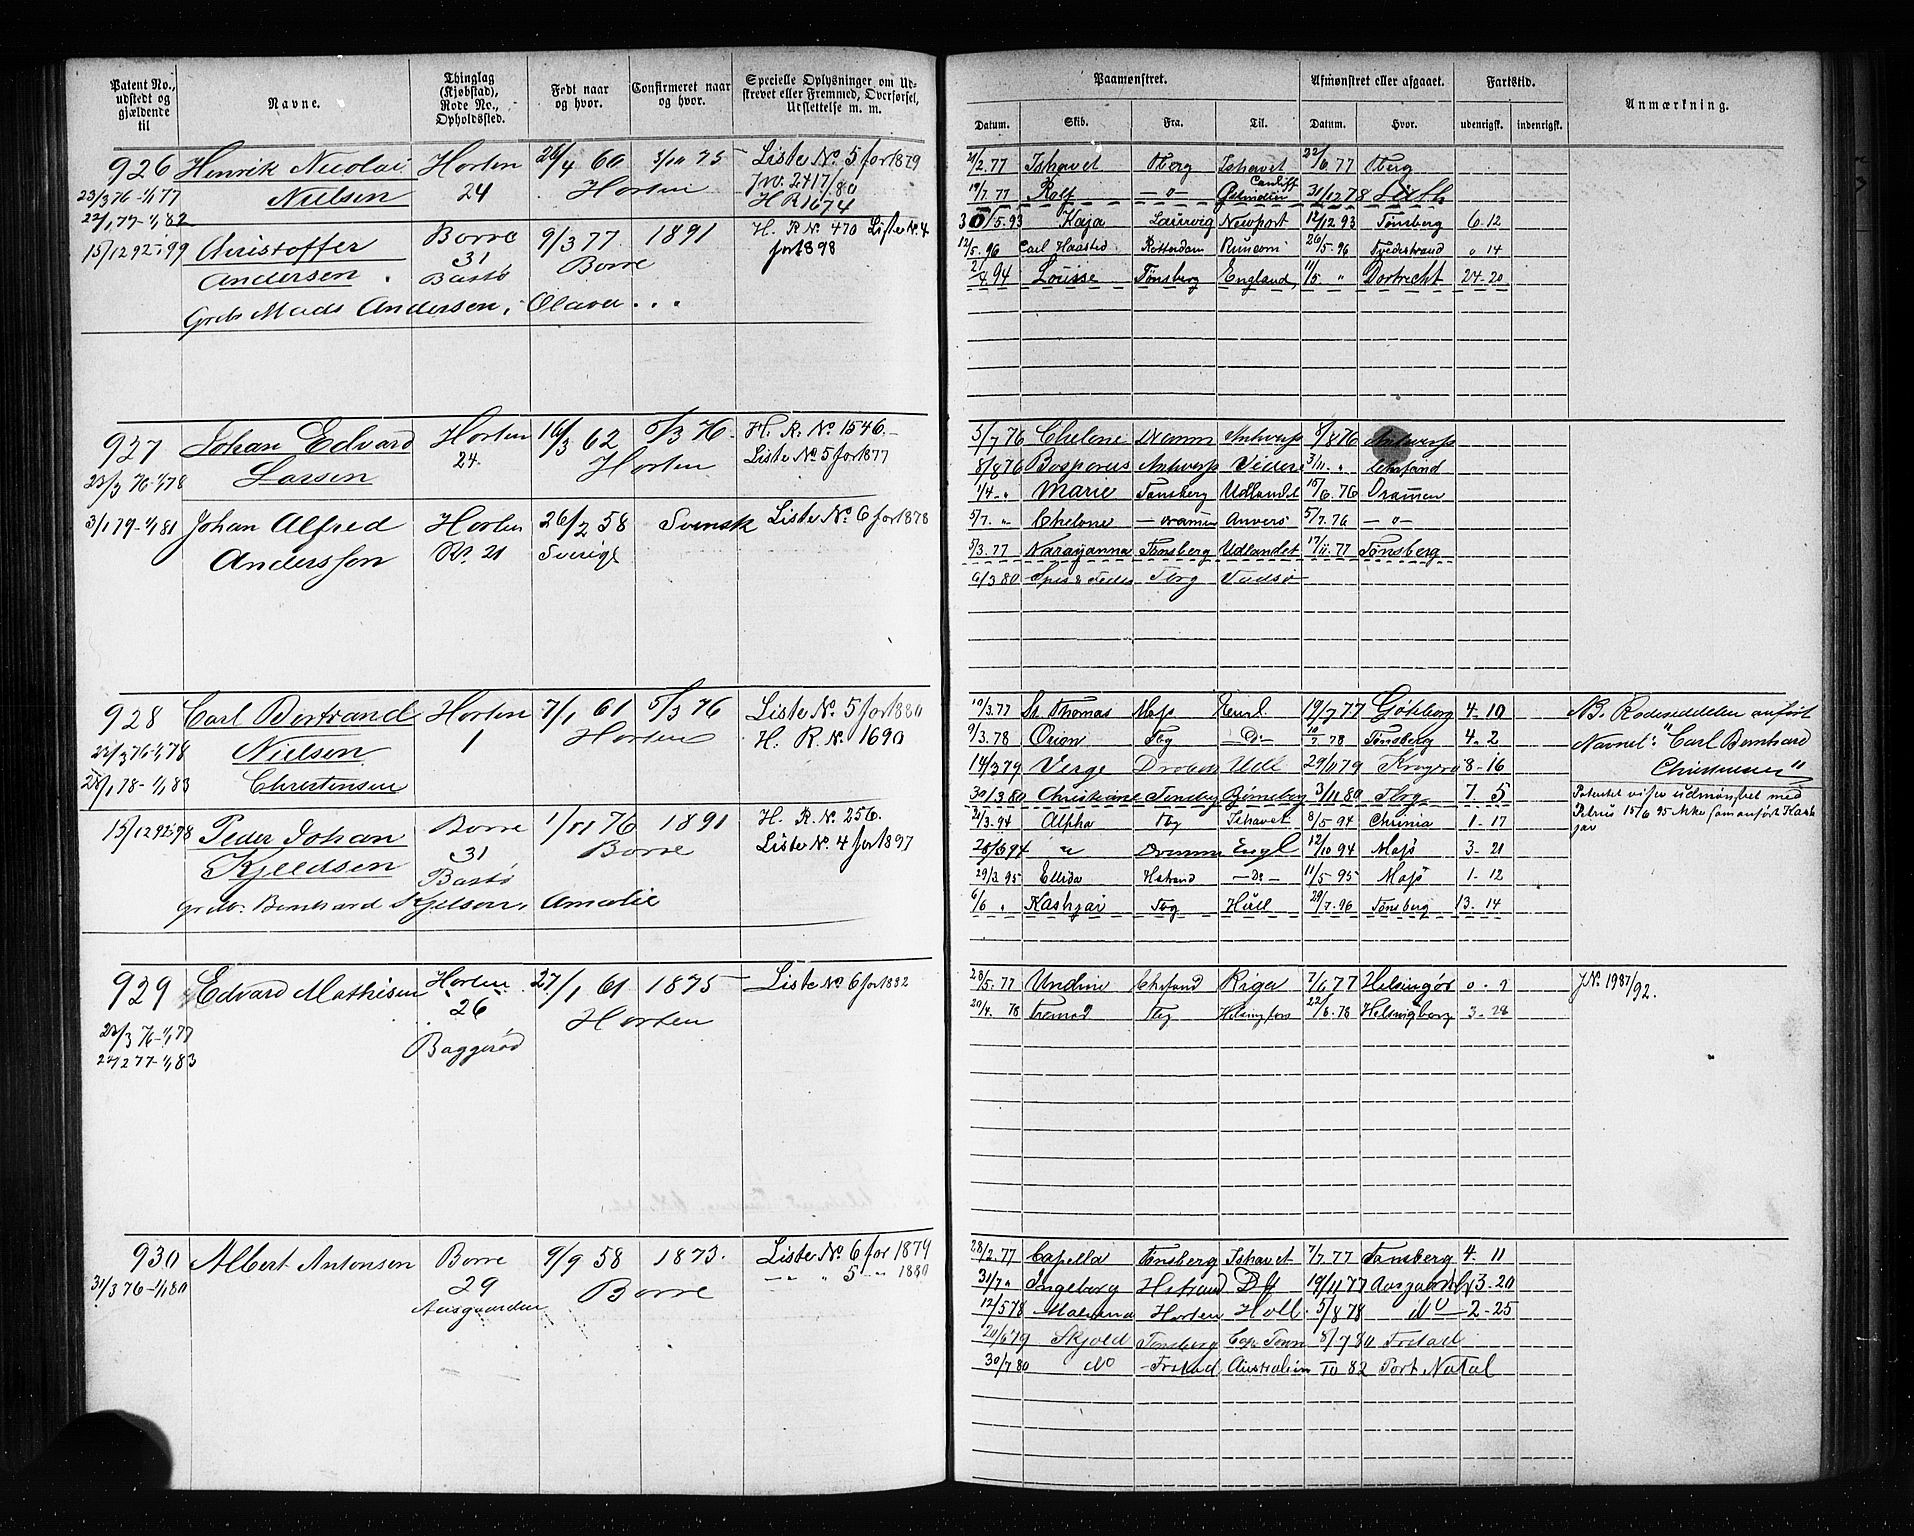 Patent No., udstedt og gjældende til
Navne.
Thinglag (Kjøbstad), Rode No., Opholdssted.
Født naar og hvor.
Confirmeret naar og hvor.
Specielle Oplysninger om Udskrevet eller Fremmed, Overførsel, Udslettelse m. m.
926 Henrik Nicolai Horten 26/4 60 3/10 75 Liste No. 5 for 1879
23/3 76-1/1 77 Nielsen 24 Horten J.No. 2417/80
22/1 77-1/1 82 H R 1674
15/12 92-99 Christoffer Borre 9/3 77 1891 H. R. No. 470 Liste No. 4
Andersen. 31 Borre for 1898
Bastø
Mads Andersen, Olava
927 Johan Edvard Horten 16/3 62 5/3 76. H. R. No. 1546.
23/3 76-1/1 78 Larsen 24 Horten Liste No. 5 for 1877
3/1 79-1/1 81 Johan Alfred Horten 26/2 58 Svensk Liste No. 6 for 1878
Andersson No. 21 Sverige
928 Carl Bertrand Horten 7/1 61 5/3 76 Liste No. 5 for 1880
23/3 76-1/1 78 Nielsen 1 Horten H. R. No. 1690
28/1 78-1/1 83 Christensen
15/12 92-98 Peder Johan Borre 1/11 76 1891 H. R. No. 256.
Kjeldsen 31 Borre Liste No. 4 for 1897
Bastø
Bernhard Amalie
929 Edvard Mathisen Horten 27/1 61 1875 Liste No. 6 for 1882
26 Horten
23/3 76-1/1 77 Baggerød
24/2 77-1/1 83
930 Albert Antonsen Borre 9/9 58 1873. Liste No. 6 for 1874
31/3 76-1/1 80 29 Borre " " 5 " 1880
Aasgaarden
Paamønstret.
Afmønstret eller afgaaet.
Fartstid.
Anmærkning.
Datum. Skib. Fra. Til. Datum. Hvor. udenrigsk. indenrigsk.
21/2.77 Ishavet Tberg Ishavet 22/6.77 Tberg
19/7.77 Rolf -o- Cardiff 31/12 78
30/5.93 Kaja Laurvig Newport 12/12 93 Tønsberg 6.12
12/5.96 Carl Haasted Rotterdam Runcorn 26/5.96 Tvedestrand " 14
2/4 94 Louise Tønsberg England, 11/5 " Dortrecht 24-20
3/7 76 Chelone Dramm Antwerp 8/8 76 Antwerp
8/8 76 Bosporus Antwerp 3/11. "
1/4 - " Marie Tønsberg Udlandet 15/6.76 Dramen
5/7. " Chelone - Dramen Anvers 5/7.76 -o-
5/3.77 Narayanna Tønsberg Udlandet 17/11.77 Tønsberg
6/3 80 Tbrg Vadsø
10/3.77 St Thomas Moss 19/7 77 4-10
9/3.78 Orion Tbg - Do - 10/7 78 Tønsberg 4. 2
14/3 79 Verge Udl 29/11 79 8-16
30/3 80 Christiane Tønsbg Bjørneborg 3/11 80 Tbrg 7. 5
21/3.94 Alpha Tbg Ishavet 8/5 94 Chrinia 1-17
28/6 94 " Dramm Engl 12/10 94 Moss 3. 21
29/3 95 Ellida Hstrand - Do - 11/5-95 Moss 1-12
6/6 " Kashgar Tbg Hull 29/7.96 Tønsberg 13. 14
NB. Rodeseddelen anført Navnet: "Carl Bernhard Christensen"
Patentet viser udmønstret med Petrus 15/6 95 ikke som anført Kashgar
23/5.77 Undine Chrsand Riga 7/6 77 Helsingør 0.
20/4. 78 Tbg Helsingfors 22/8.78 Helsingborg 3-28
J.No. 1987/92.
28/2.77 Capella Tønsberg Ishavet 7/7.77 Tønsberg 4. 11
31/7 " Ingeborg Hstrand 19/11 77 3-20
12/5 78 Horten Holl. 5/8 78 Do 2-25
20/6 79 Skjold Tønsberg Cap Town 8/7 80 Frstad
30/7 80 Do - Frstad Australien 82 Port Natal